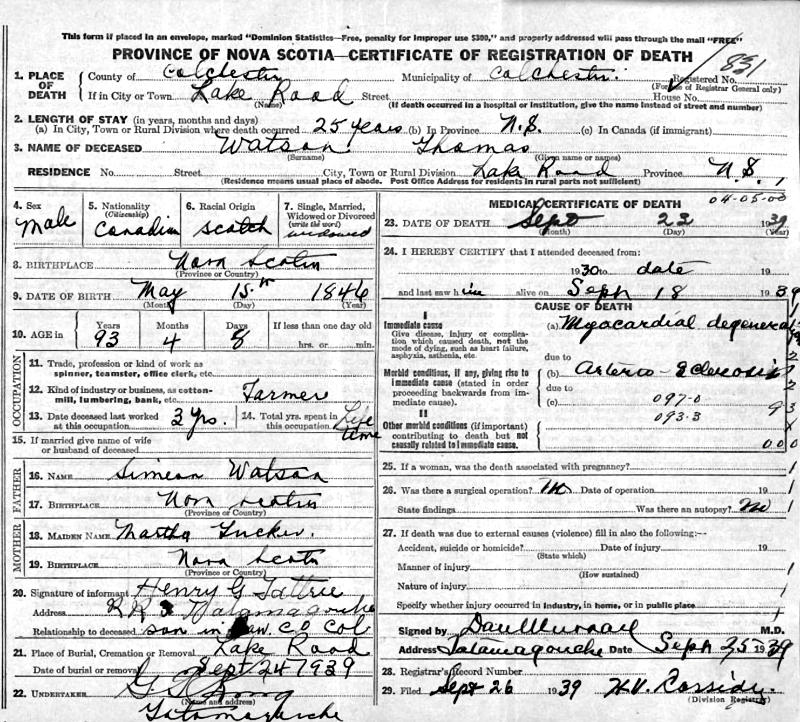 This form if placed in an envelope, marked "Dominion Statistics—Free, penalty for improper use $300," and properly addressed will pass through the mail "FREE"
PROVINCE OF NOVA SCOTIA—CERTIFICATE OF REGISTRATION OF DEATH
831
1. PLACE OF DEATH
County of Colchester Municipality of Colchester. Registered No.
(For use of Registrar General only)
If in City or Town Lake Road Street House No.
(Name) (If death occurred in a hospital or institution, give the name instead of street and number)
2. LENGTH OF STAY (in years, months and days)
(a) In City, Town or Rural Division where death occurred 25 years (b) In Province N.S. (c) In Canada (if immigrant)
3. NAME OF DECEASED Watson Thomas
(Surname) (Given name or names)
RESIDENCE No. Street City, Town or Rural Division Lake Road Province N.S.
(Residence means usual place of abode. Post Office Address for residents in rural parts not sufficient)
4. Sex
Male
5. Nationality
(Citizenship)
Canadian
6. Racial Origin
Scotch
7. Single, Married, Widowed or Divorced
(write the word)
widowed
8. BIRTHPLACE Nova Scotia
(Province or Country)
9. DATE OF BIRTH May 15th 1846
(Month) (Day) (Year)
10. AGE in
Years Months Days If less than one day old
93 4 8 hrs. or min.
OCCUPATION
11. Trade, profession or kind of work as spinner, teamster, office clerk, etc.
12. Kind of industry or business, as cotton-mill, lumbering, bank, etc. Farmer
13. Date deceased last worked at this occupation. 3 yrs.
14. Total yrs. spent in this occupation Life time
15. If married give name of wife or husband of deceased
FATHER
16. NAME Simeon Watson
17. BIRTHPLACE Nova Scotia
(Province or Country)
MOTHER
18. MAIDEN NAME Martha Tucker.
19. BIRTHPLACE Nova Scotia
(Province or Country)
20. Signature of informant Henry G Tattrie
Address RR 3 Tatamagouche
Relationship to deceased son in law. Co Col
21. Place of Burial, Cremation or Removal Lake Road
Date of burial or removal Sept 24 1939
22. UNDERTAKER
(Name and address)
Tatamagouche
MEDICAL CERTIFICATE OF DEATH
04-05-00
23. DATE OF DEATH Sept 23 1939
(Month) (Day) (Year)
24. I HEREBY CERTIFY that I attended deceased from:
1930 to date 19
and last saw him alive on Sept 18 1939
CAUSE OF DEATH
I
Immediate cause
Give disease, injury or complication which caused death, not the mode of dying, such as heart failure, asphyxia, asthenia, etc.
(a) Myocardial degenera
due to
Morbid conditions, if any, giving rise to immediate cause (stated in order proceeding backwards from immediate cause).
(b) Arterio-Sclerosis
due to
(c) 097-0
093-3
II
Other morbid conditions (if important) contributing to death but not causally related to immediate cause.
25. If a woman, was the death associated with pregnancy?
26. Was there a surgical operation? No Date of operation 19
State findings Was there an autopsy? No
27. If death was due to external causes (violence) fill in also the following:—
Accident, suicide or homicide? Date of injury 19
(State which)
Manner of injury
(How sustained)
Nature of injury
Specify whether injury occurred in industry, in home, or in public place
Signed by Dan Murray M.D.
Address Tatamagouche Date Sept 25 1939
28. Registrar's Record Number
29. Filed Sept 26 1939 H.V. Cassidy
(Division Registrar)